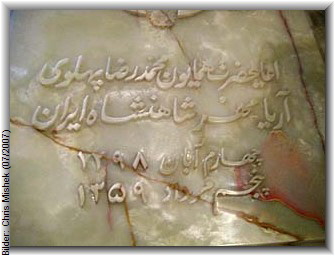 اعلیحضرت همایون محمد رضا پهلوی
آریا مهر شاهنشاه ایران
چهارم آبان ۱۲۹۸
پنجم مرداد ۱۳۵۹
Bilder: Chris Mishek (07/2007)